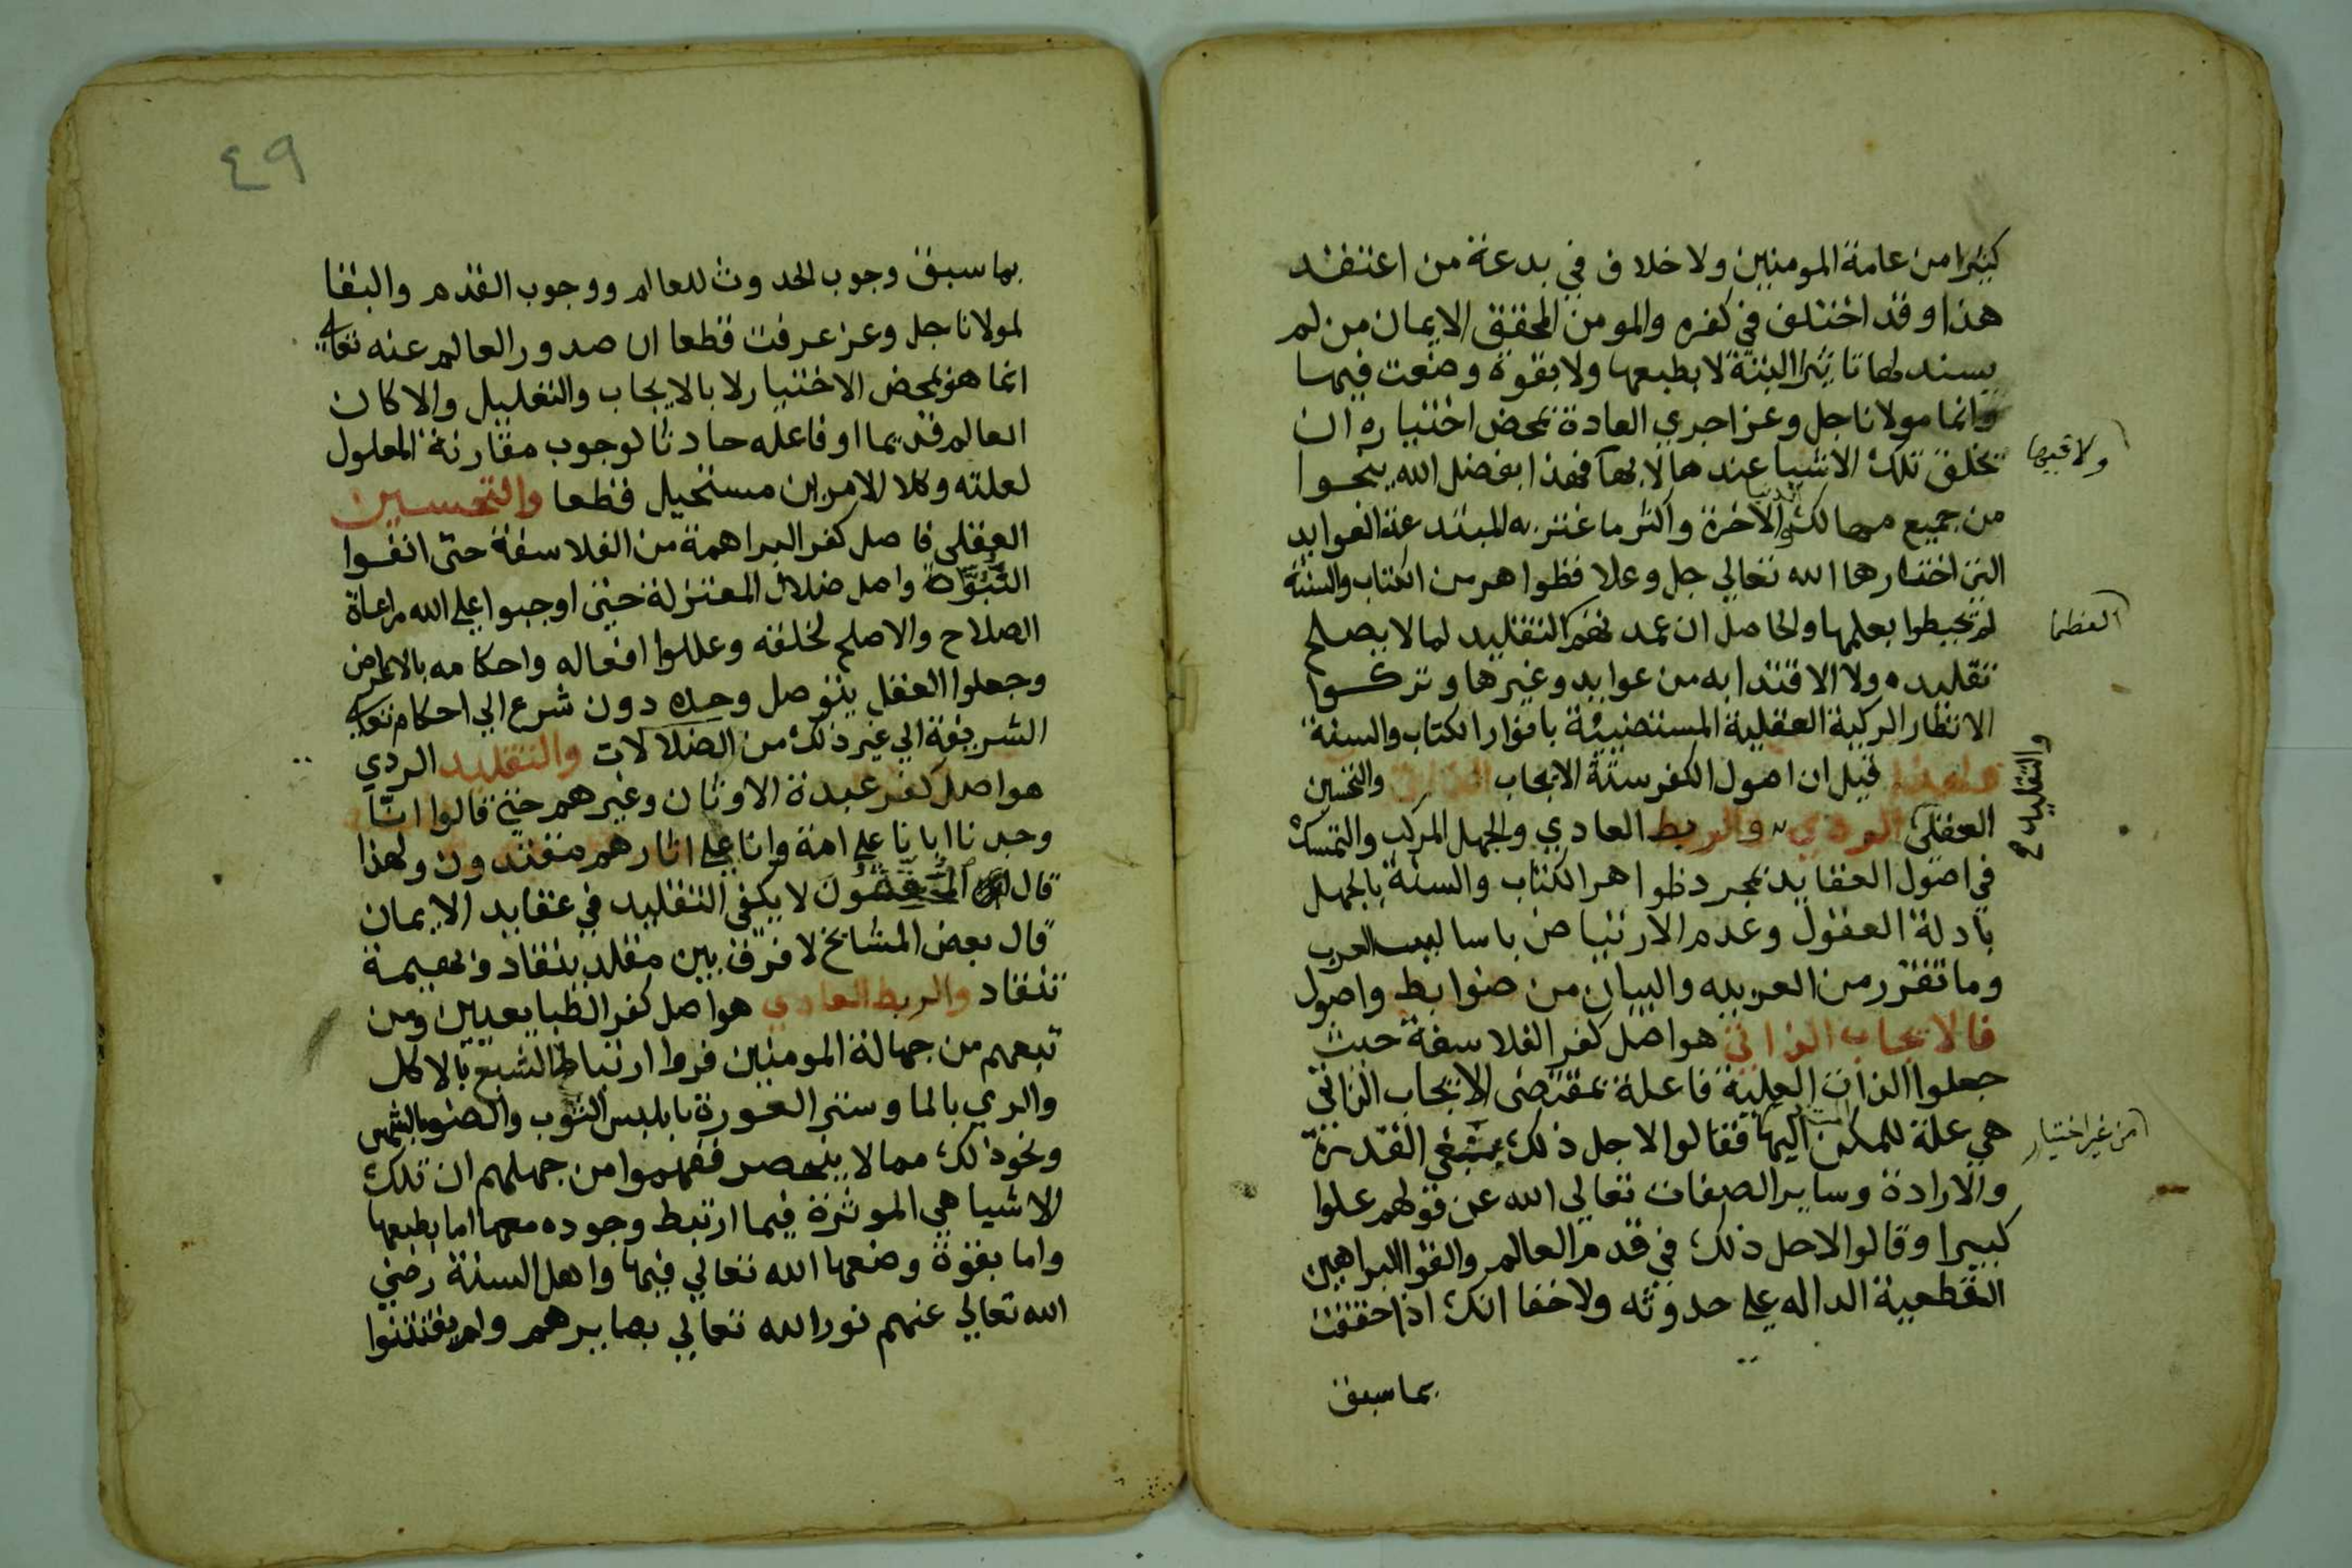 كثيرا من عامة المومنين ولا خلاف في بدعة من اعتقد
هذا وقد اختلف في كفره والمومن المحقق الايمان من لم
يسند لها تاثيرا البتة لا بطبعها ولا بقوة وضعت فيها
وانما مولانا جل وعز اجري العادة بمحض اختياره ان
يخلق تلك الاشيا عندها لا بها فهذا بفضل الله ينجوا
ولا فيها
من جميع مهالك الدنيا والاخرة واكثر ما اغتر به المبتدعة العوايد
التي اختارها الله تعالي جل وعلا وظواهر من الكتاب والسنة
لم يحيطوا بعلمها والحاصل ان عمدتهم التقليد لما لا يصلح
العظما
تقليده ولا الاقتدا به من عوايد وغيرها وتركوا
الانظار الزكية العقلية المستضيئة بانوار الكتاب والسنة
ولهذا قيل ان اصول الكفر ستة الايجاب الذاتي والتحسين
العقلي الردي والربط العادي والجهل المركب والتمسك
والتقليد
في اصول العقايد بمجرد ظواهر الكتاب والسنة بالجهل
بادلة العقول وعدم الارتياض باساليب العرب
وما تقرر من العربيه والبيان من ضوابط واصول
فالايجاب الذاتي هو اصل كفر الفلاسفة حيث
جعلوا الذات العلية فاعلة بمقتضى الايجاب الذاتي
هي علة للممكن اليها فقالوا لاجل ذلك بنفي القدرة
من غير اختيار
والارادة وساير الصفات تعالي الله عن قولهم علوا
كبيرا وقالوا لاجل ذلك في قدم العالم والغوا البراهين
القطعية الداله علي حدوثه ولا خفا انك اذا حققت
بما سبق
٤٩
بما سبق وجوب الحدوث للعالم ووجوب القدم والبقا
لمولانا جل وعز عرفت قطعا ان صدور العالم عنه تعالي
انما هو بمحض الاختيار لا بالايجاب والتعليل والا كان
العالم قديما او فاعله حادثا لوجوب مقارنة المعلول
لعلته وكلا الامرين مستحيل قطعا والتحسين
العقلي فاصل كفر البراهمة من الفلاسفة حتى انفوا
النبوة واصل ضلال المعتزلة حتى اوجبوا علي الله مراعاة
الصلاح والاصلح لخلقه وعللوا افعاله واحكامه بالاغراض
وجعلوا العقل يتوصل وحده دون شرع الي احكام تعالي
الشريفة الي غير ذلك من الضلالات والتقليد الردي
هو اصل كفر عبدة الاوثان وغيرهم حتى قالوا انا
وجدنا ابانا علي امة وانا علي اثارهم مقتدون ولهذا
قال المحققون لا يكفي التقليد في عقايد الايمان
قال بعض المشايخ لا فرق بين مقلد ينقاد وبهيمة
تنقاد والربط العادي هو اصل كفر الطبايعيين ومن
تبعهم من جهالة المومنين فروا ارتباط الشبع بالاكل
والري بالما وستر العورة بابلبس الثوب والضو بالشمس
ونحو ذلك مما لا ينحصر ففهموا من جهلهم ان تلك
الاشيا هي الموثرة فيما ارتبط وجوده معها اما بطبعها
واما بقوة وضعها الله تعالي فيها واهل السنة رضي
الله تعالي عنهم نور الله تعالي بصايرهم ولم يفتتنوا